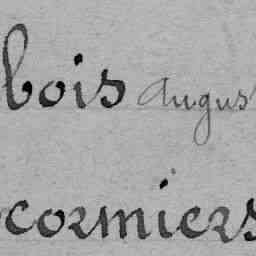 bois Augus
cormiers